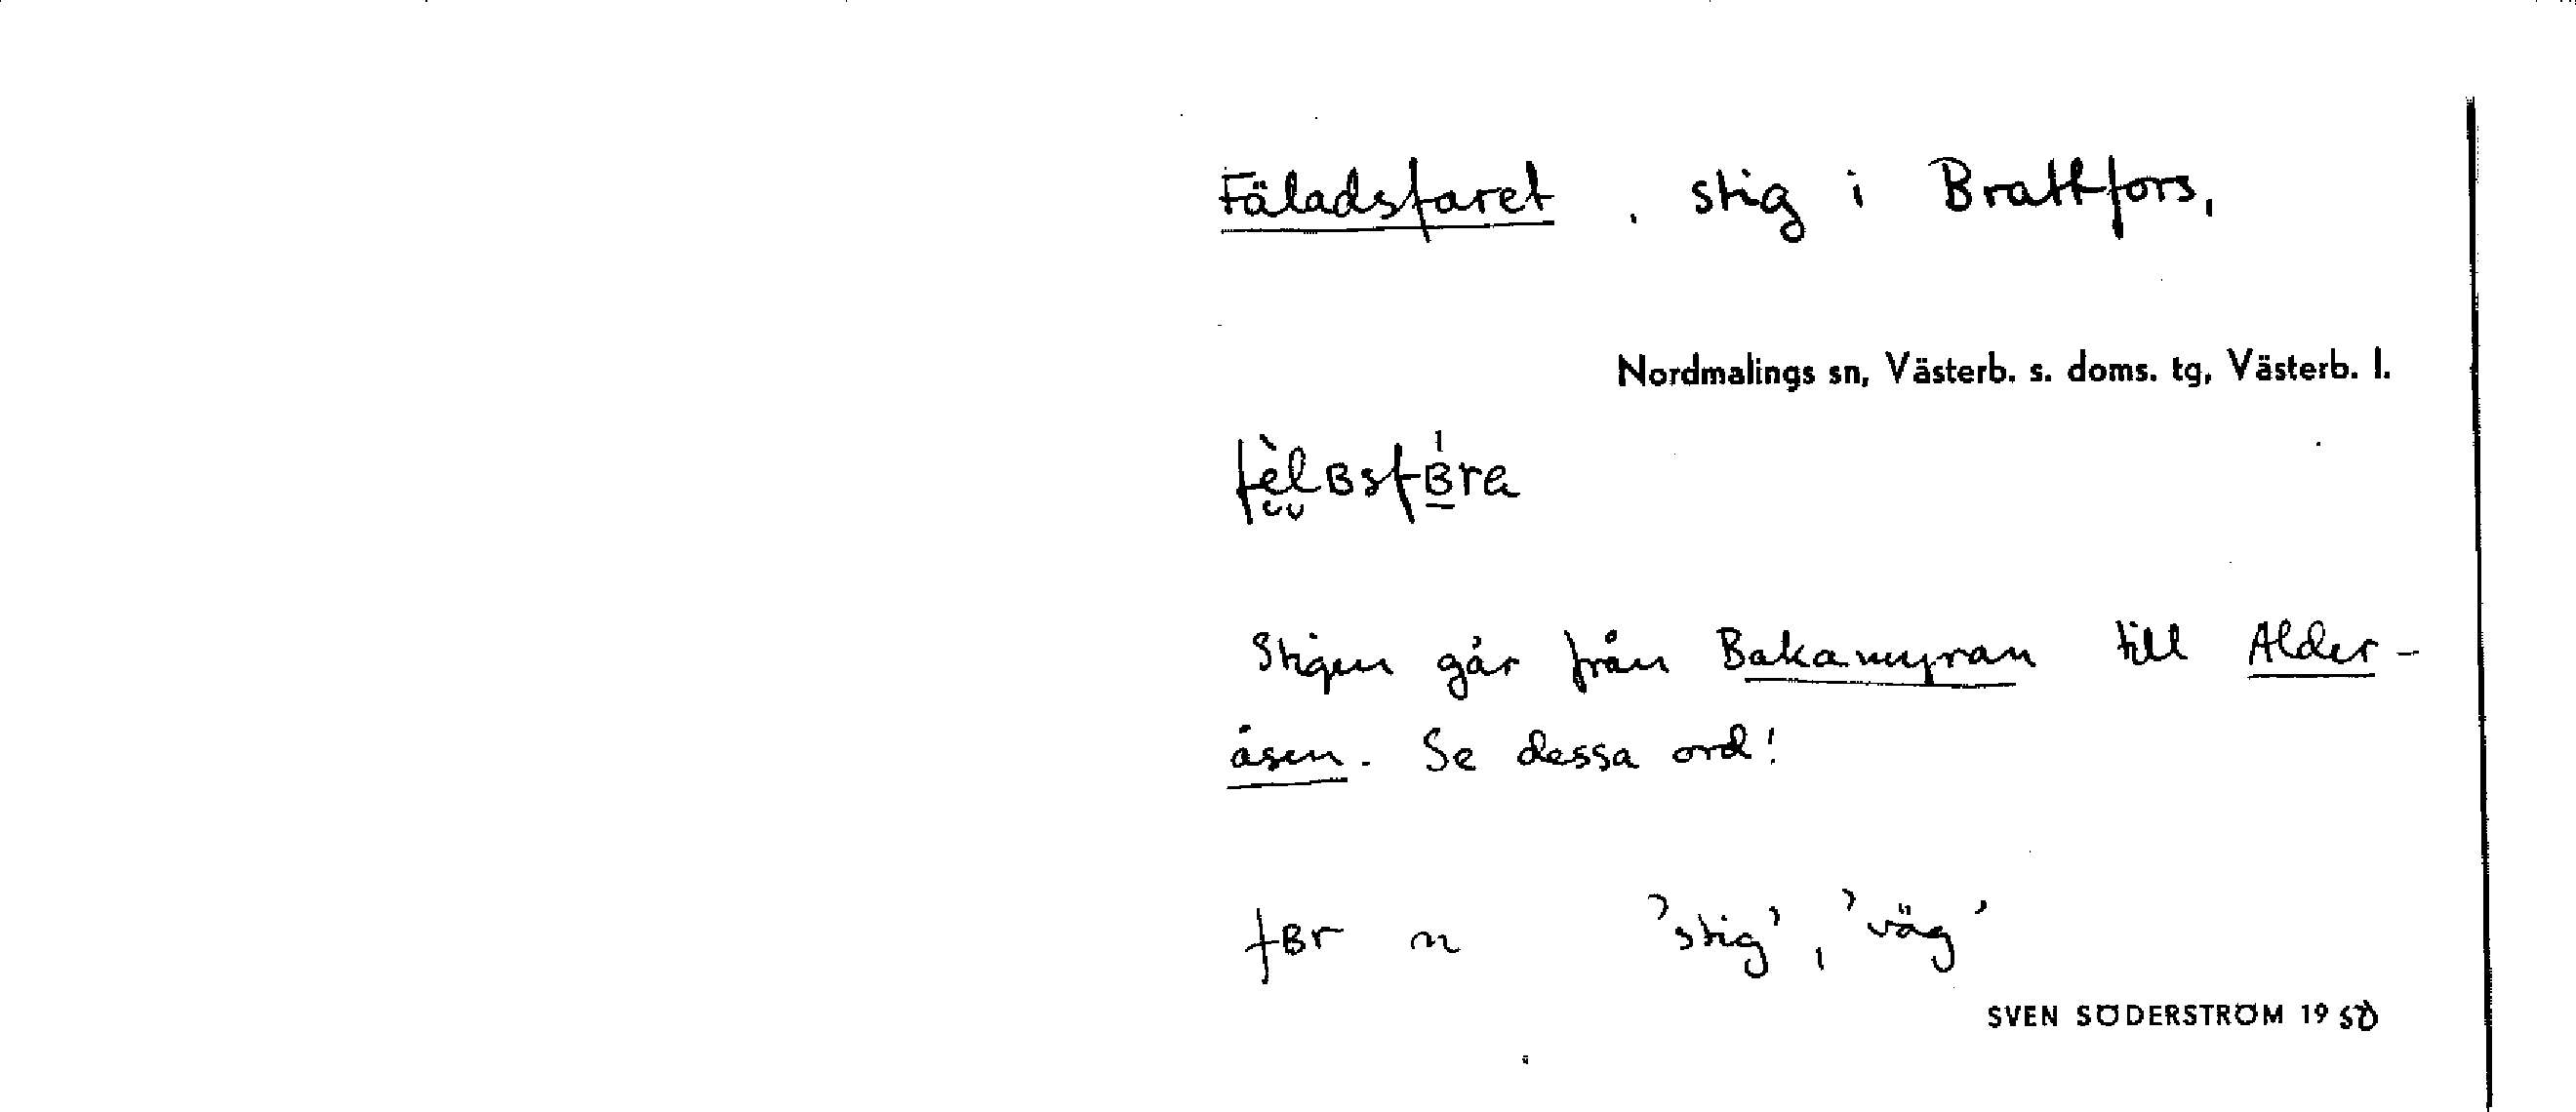 Fäladsfaret, stig i Brattfors,
Nordmalings sn, Västerb. s. doms. tg, Västerb. l.
fèlʙsfʙ́ra
Stigen går från Bakamyran till Alder-
åsen. Se dessa ord!
fʙr n 'stig', 'väg'
SVEN SÖDERSTRÖM 1950